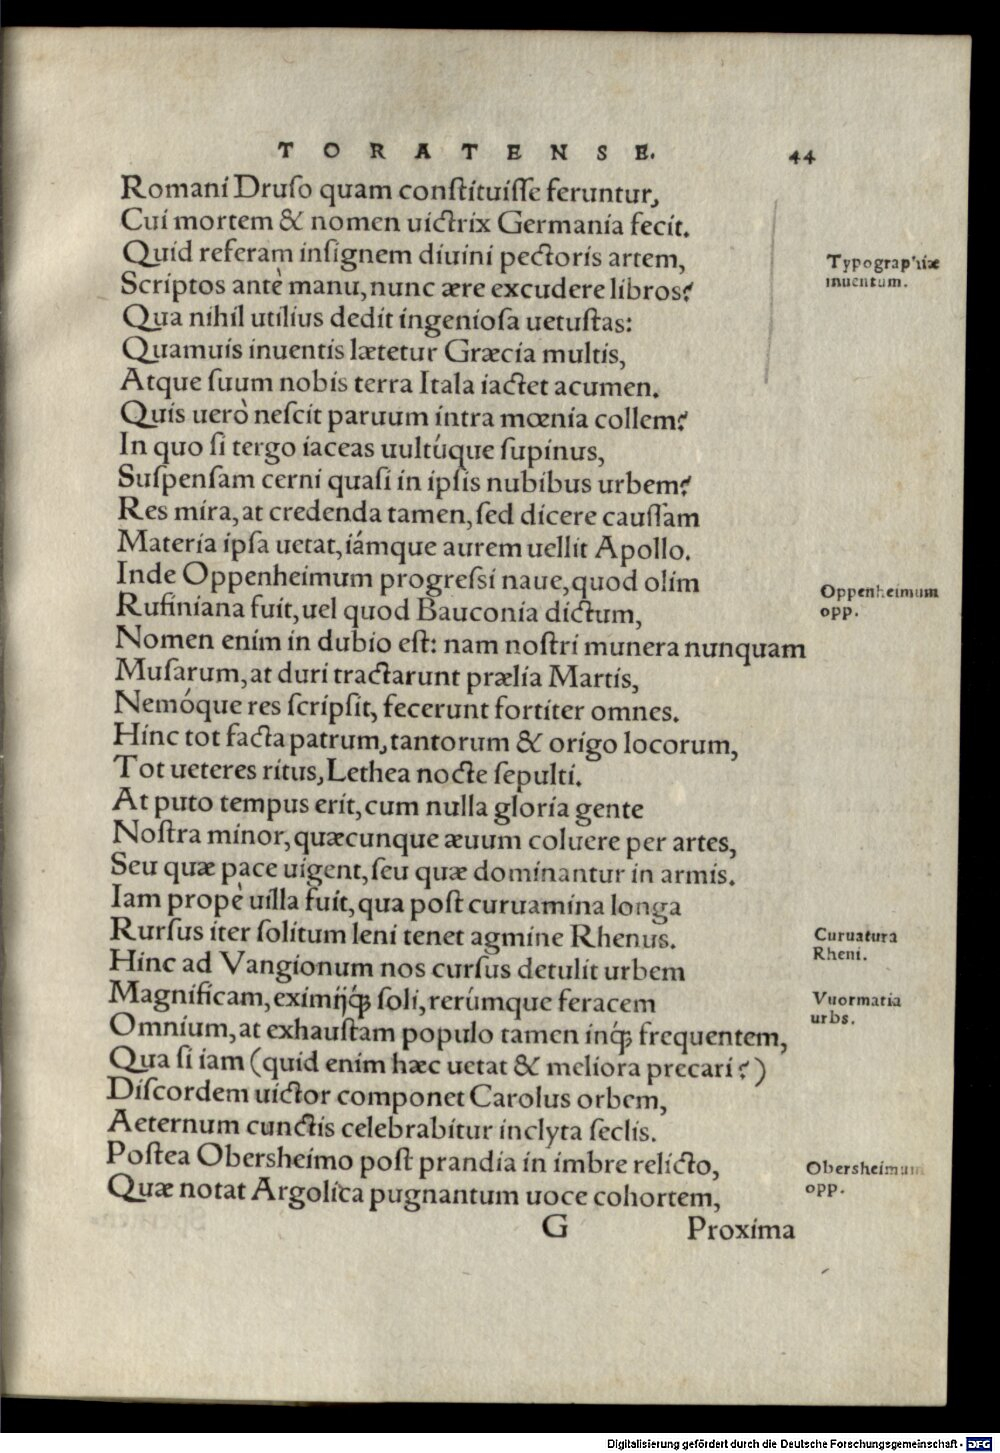 TORATENSE. 44
Romani Druſo quam conſtituiſſe feruntur,
Cui mortem & nomen uictrix Germania fecit.
Quid referam inſignem diuini pectoris artem,
Typographiæ
inuentum.
Scriptos antè manu, nunc ære excudere libros?
Qua nihil utilius dedit ingenioſa uetuſtas:
Quamuis inuentis lætetur Græcia multis,
Atque ſuum nobis terra Itala iactet acumen.
Quis uerò neſcit paruum intra mœnia collem?
In quo ſi tergo iaceas uultúque ſupinus,
Suſpenſam cerni quaſi in ipſis nubibus urbem?
Res mira, at credenda tamen, ſed dicere cauſſam
Materia ipſa uetat, iámque aurem uellit Apollo.
Inde Oppenheimum progreſſi naue, quod olim
Oppenheimum
opp.
Rufiniana fuit, uel quod Bauconia dictum,
Nomen enim in dubio eſt: nam noſtri munera nunquam
Muſarum, at duri tractarunt prælia Martis,
Nemóque res ſcripſit, fecerunt fortiter omnes.
Hinc tot facta patrum, tantorum & origo locorum,
Tot ueteres ritus, Lethea nocte ſepulti.
At puto tempus erit, cum nulla gloria gente
Noſtra minor, quæcunque æuum coluere per artes,
Seu quæ pace uigent, ſeu quæ dominantur in armis.
Iam propè uilla fuit, qua poſt curuamina longa
Rurſus iter ſolitum leni tenet agmine Rhenus.
Curuatura
Rheni.
Hinc ad Vangionum nos curſus detulit urbem
Magnificam, eximijq́ꝫ ſoli, rerúmque feracem
Vuormatia
urbs.
Omnium, at exhauſtam populo tamen inq́ꝫ frequentem,
Qua ſi iam (quid enim hæc uetat & meliora precari?)
Diſcordem uictor componet Carolus orbem,
Aeternum cunctis celebrabitur inclyta ſeclis.
Poſtea Obersheimo poſt prandia in imbre relicto,
Obersheimum
opp.
Quæ notat Argolica pugnantum uoce cohortem,
G Proxima
Digitalisierung gefördert durch die Deutsche Forschungsgemeinschaft - DFG